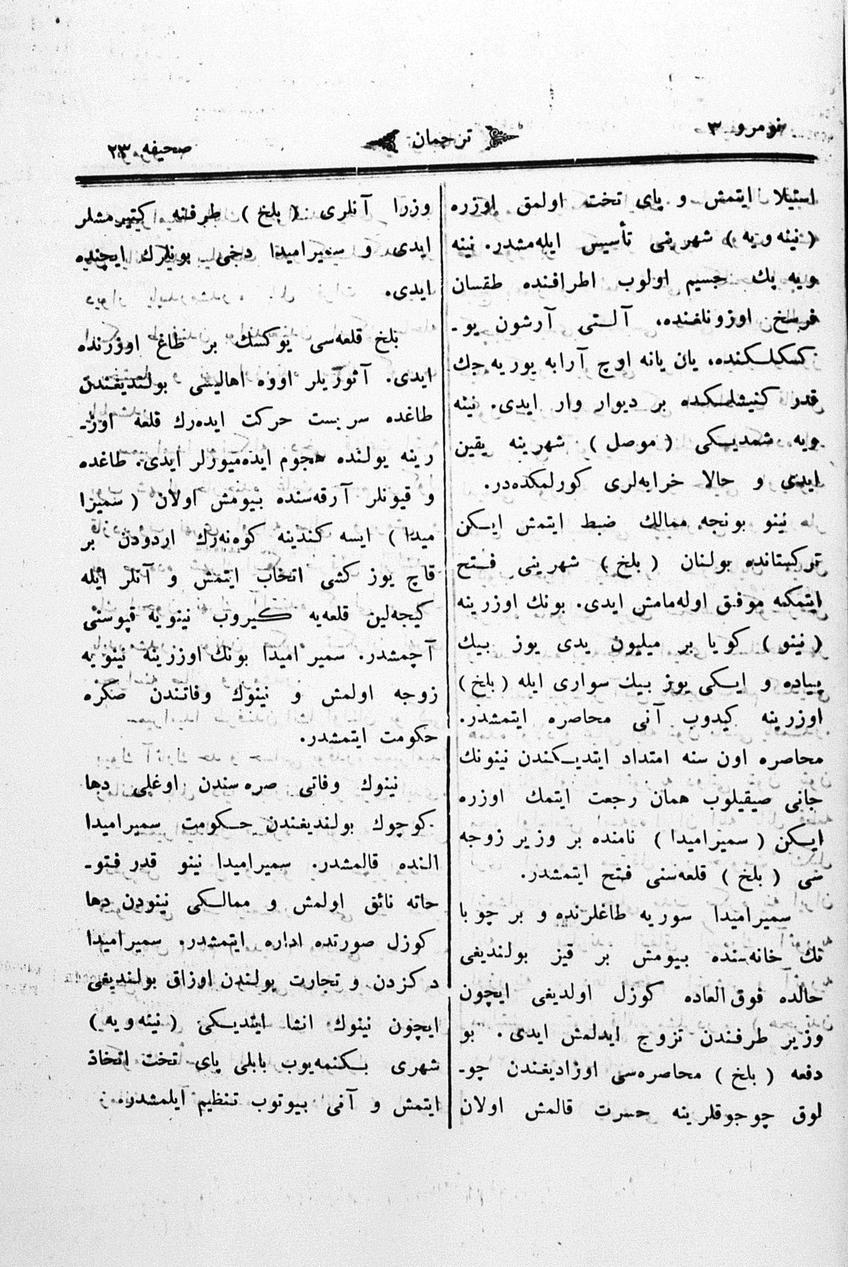 نومرو ٣
ترجمان
صحیفه ٢٣
استیلا ایتمش و پای تخت اولمق اوزره
(نینه‌ویه) شهرینی تأسیس ایله‌مشدر. نینه
ویه پك جسیم اولوب اطرافنده طقسان
فرسخ اوزونلغنده، آلتی آرشون یو-
کسکلکنده، یان یانه اوچ آرابه یوریه‌جك
قدر کنیشلکده بر دیوار وار ایدی. نینه
ویه شمدیکی (موصل) شهرینه یقین
ایدی و حالا خرابه‌لری کورلمکده‌در.
نینو بونجه ممالك ضبط ایتمش ایکن
ترکستانده بولنان (بلخ) شهرینی فتح
ایتمکه موفق اوله‌مامش ایدی. بونك اوزرینه
(نینو) کویا بر میلیون یدی یوز بیك
پیاده و ایکی یوز بیك سواری ایله (بلخ)
اوزرینه کیدوب آنی محاصره ایتمشدر.
محاصره اون سنه امتداد ایتدیکندن نینونك
جانی صیقیلوب همان رجعت ایتمك اوزره
ایکن (سمیرامیدا) نامنده بر وزیر زوجه
سی (بلخ) قلعه‌سنی فتح ایتمشدر.
سمیرامیدا سوریه طاغلرنده و بر چوبا
نك خانه‌سنده بیومش بر قیز بولندیغی
حالده فوق العاده کوزل اولدیغی ایچون
وزیر طرفندن تزوج ایدلمش ایدی. بو
دفعه (بلخ) محاصره‌سی اوزادیغندن چو-
لوق چوجوقلرینه حسرت قالمش اولان
وزرا آنلری (بلخ) طرفنه کیتیرمشلر
ایدی و سمیرامیدا دخی بونلرك ایچنده
ایدی.
بلخ قلعه‌سی یوکسك بر طاغ اوزرنده
ایدی. آثوریلر اووه اهالیسی بولندیغندن
طاغده سربست حرکت ایده‌رك قلعه اوز-
رینه یولنده هجوم ایده‌میورلر ایدی. طاغده
و قیونلر آرقه‌سنده بیومش اولان (سمیرا
میدا) ایسه کندینه کوه‌نه‌رك اردودن بر
قاچ یوز کشی انتخاب ایتمش و آنلر ایله
کیجه‌لین قلعه‌یه کیروب نینویه قپوسنی
آچمشدر. سمیرامیدا بونك اوزرینه نینویه
زوجه اولمش و نینوك وفاتندن صکره
حکومت ایتمشدر.
نینوك وفاتی صره‌سندن اوغلی دها
کوچوك بولندیغندن حکومت سمیرامیدا
النده قالمشدر. سمیرامیدا نینو قدر فتو-
حاته نائق اولمش و ممالکی نینودن دها
کوزل صورتده اداره ایتمشدر. سمیرامیدا
دکزدن و تجارت یولندن اوزاق بولندیغی
ایچون نینوك انشا ایتدیکی (نینه‌ویه)
شهری بکنمه‌یوب بابلی پای تخت اتخاذ
ایتمش و آنی بیوتوب تنظیم ایلمشدر.